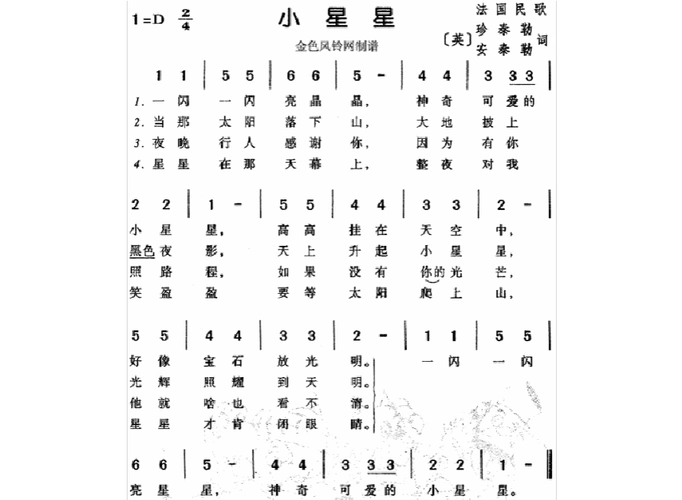 1=D 2/4 小星星 法国民歌
金色风铃网制谱 〔英〕珍泰勒 安泰勒 词
1 1 | 5 5 | 6 6 | 5 - | 4 4 | 3 3 3 |
1. 一闪 一闪 亮晶 晶, 神奇 可爱的
2. 当那 太阳 落下 山, 大地 披上
3. 夜晚 行人 感谢 你, 因为 有你
4. 星星 在那 天幕 上, 整夜 对我
2 2 | 1 - | 5 5 | 4 4 | 3 3 | 2 - |
小星 星, 高高 挂在 天空 中,
黑色夜 影, 天上 升起 小星 星,
照路 程, 如果 没有 你的光 芒,
笑盈 盈 要等 太阳 爬上 山,
5 5 | 4 4 | 3 3 | 2 - | 1 1 | 5 5 |
好像 宝石 放光 明。 一闪 一闪
光辉 照耀 到天 明。
他就 啥也 看不 清。
星星 才肯 闭眼 睛。
6 6 | 5 - | 4 4 | 3 3 3 | 2 2 | 1 - |
亮星 星, 神奇 可爱的 小星 星。